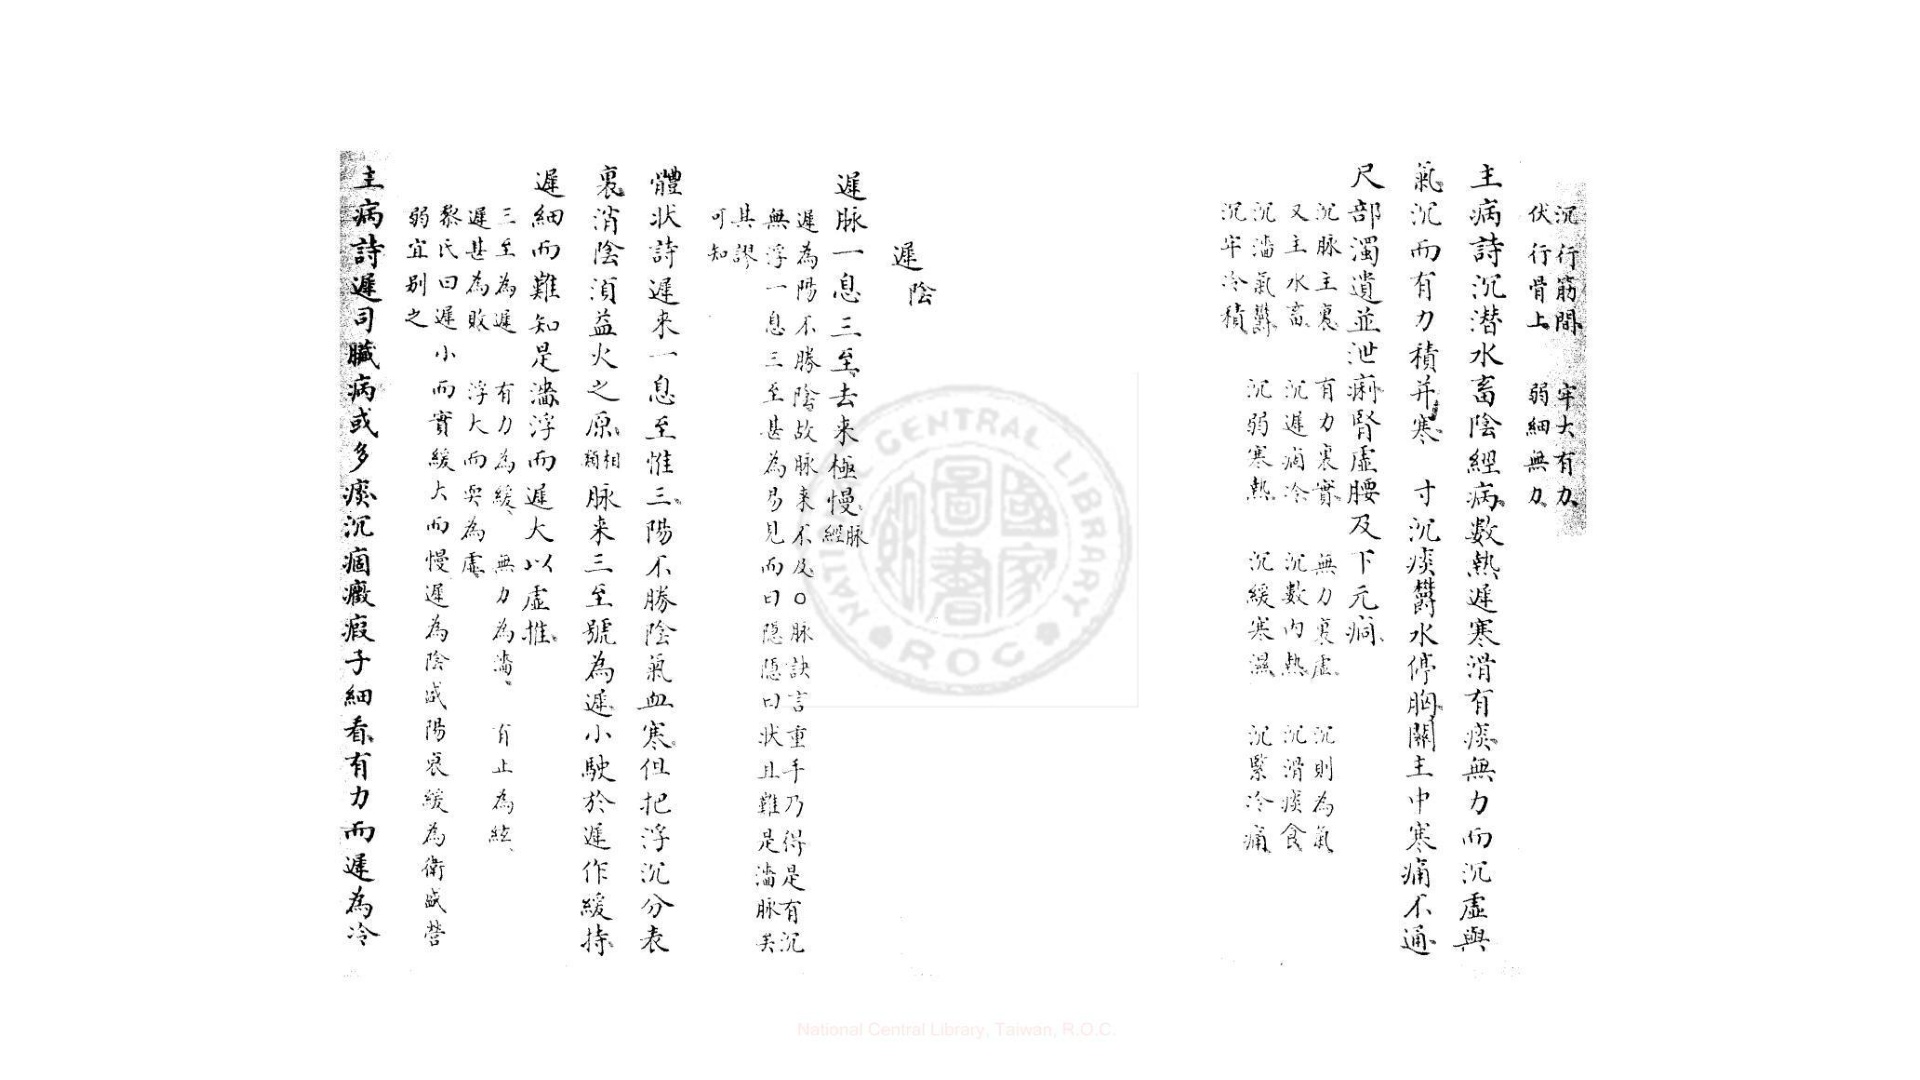 沉行筋間　牢大有力
伏行骨上　弱細無力
主病詩沉潜水畜陰經病數熱遲寒滑有痰無力而沉虛與
氣沉而有力積并寒　寸沉痰欝水停胸關主中寒痛不通
尺部濁遺並泄痢腎虛腰及下元痾
沉脉主裏　有力裏實　無力裏虛　沉則為氣
又主水畜　沉遲痼冷　沉數内熱　沉滑痰食
沉濇氣欝　沉弱寒熱　沉緩寒濕　沉緊冷痛
沉牢冷積
遲陰
遲脉一息三至去来極慢脉經
遲為陽不勝陰故脉来不及○脉訣言重手乃得是有沉
無浮一息三至甚為易見而曰隠隠曰状且難是濇脉矣
其謬
可知
體状詩遲来一息至惟三陽不勝陰氣血寒但把浮沉分表
裏消陰湏益火之原相類脉来三至號為遲小駛於遲作緩持
遲細而難知是濇浮而遲大以虛推
三至為遲　有力為緩　無力為濇　有止為結
遲甚為敗　浮大而耎為虛
黎氏曰遲小而實緩大而慢遲為陰盛陽衰緩為衛盛營
弱宜别之
主病詩遲司臟病或多痰沉痼癥瘕子細看有力而遲為冷
NATIONAL CENTRAL LIBRARY
國家圖書館
ROC
National Central Library, Taiwan, R.O.C.